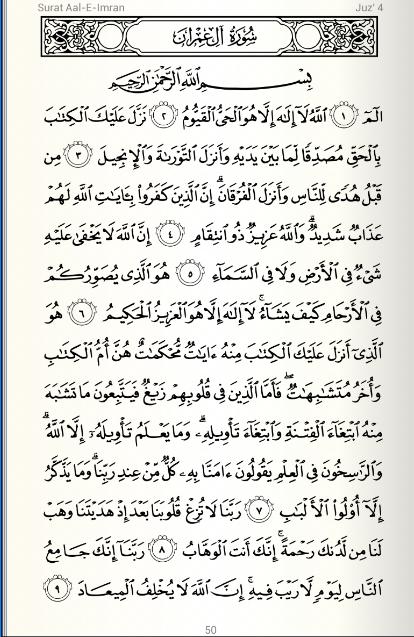 Surat Aal-E-Imran Juz' 4
سُورَةُ آلِ عِمْرَانَ
بِسْمِ اللَّهِ الرَّحْمَٰنِ الرَّحِيمِ
الٓمٓ ١ ٱللَّهُ لَآ إِلَٰهَ إِلَّا هُوَ ٱلْحَىُّ ٱلْقَيُّومُ ٢ نَزَّلَ عَلَيْكَ ٱلْكِتَٰبَ
بِٱلْحَقِّ مُصَدِّقًا لِّمَا بَيْنَ يَدَيْهِ وَأَنزَلَ ٱلتَّوْرَىٰةَ وَٱلْإِنجِيلَ ٣ مِن
قَبْلُ هُدًى لِّلنَّاسِ وَأَنزَلَ ٱلْفُرْقَانَ ۗ إِنَّ ٱلَّذِينَ كَفَرُوا۟ بِـَٔايَٰتِ ٱللَّهِ لَهُمْ
عَذَابٌ شَدِيدٌ ۗ وَٱللَّهُ عَزِيزٌ ذُو ٱنتِقَامٍ ٤ إِنَّ ٱللَّهَ لَا يَخْفَىٰ عَلَيْهِ
شَىْءٌ فِى ٱلْأَرْضِ وَلَا فِى ٱلسَّمَآءِ ٥ هُوَ ٱلَّذِى يُصَوِّرُكُمْ
فِى ٱلْأَرْحَامِ كَيْفَ يَشَآءُ ۚ لَآ إِلَٰهَ إِلَّا هُوَ ٱلْعَزِيزُ ٱلْحَكِيمُ ٦ هُوَ
ٱلَّذِىٓ أَنزَلَ عَلَيْكَ ٱلْكِتَٰبَ مِنْهُ ءَايَٰتٌ مُّحْكَمَٰتٌ هُنَّ أُمُّ ٱلْكِتَٰبِ
وَأُخَرُ مُتَشَٰبِهَٰتٌ ۖ فَأَمَّا ٱلَّذِينَ فِى قُلُوبِهِمْ زَيْغٌ فَيَتَّبِعُونَ مَا تَشَٰبَهَ
مِنْهُ ٱبْتِغَآءَ ٱلْفِتْنَةِ وَٱبْتِغَآءَ تَأْوِيلِهِۦ ۗ وَمَا يَعْلَمُ تَأْوِيلَهُۥٓ إِلَّا ٱللَّهُ ۗ
وَٱلرَّٰسِخُونَ فِى ٱلْعِلْمِ يَقُولُونَ ءَامَنَّا بِهِۦ كُلٌّ مِّنْ عِندِ رَبِّنَا ۗ وَمَا يَذَّكَّرُ
إِلَّآ أُو۟لُوا۟ ٱلْأَلْبَٰبِ ٧ رَبَّنَا لَا تُزِغْ قُلُوبَنَا بَعْدَ إِذْ هَدَيْتَنَا وَهَبْ
لَنَا مِن لَّدُنكَ رَحْمَةً ۚ إِنَّكَ أَنتَ ٱلْوَهَّابُ ٨ رَبَّنَآ إِنَّكَ جَامِعُ
ٱلنَّاسِ لِيَوْمٍ لَّا رَيْبَ فِيهِ ۚ إِنَّ ٱللَّهَ لَا يُخْلِفُ ٱلْمِيعَادَ ٩
50